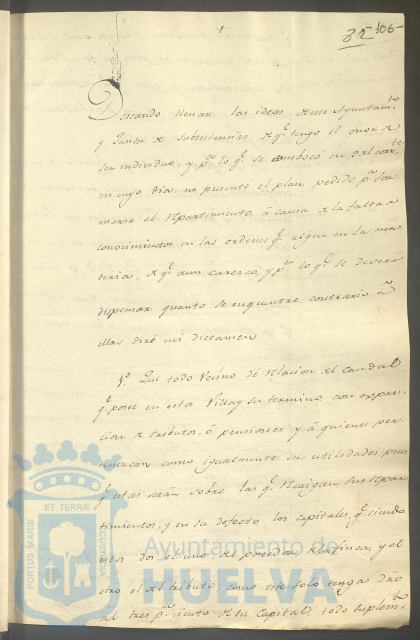 32 106
Deseando llenar las ideas de ese Ayuntamto
y Junta de Subsistencias de qe tengo el onor de
ser individuo, y pr lo qe se combocó en del corrte
en cuyo dia no presenté el plan pedido pa for-
marse el repartimiento, á causa de la falta de
conocimientos en las ordenes qe rigen en la ma-
teria, de qe aun caresco, y pr lo qe se deverá
dispensar quanto se encuentre contrario á
ellas diré mi dictamen
1º Que todo Vecino dé relacion del caudal
qe posee en esta Villa y su termino, con expre-
cion de tributos, ó penciones y á quienes per-
tenescan, como igualmente sus utilidades pues
estas serán sobre las qe recaigan los repar-
timientos, y en su defecto los capitales, qe siendo
estos dos el uno del poseedor de la finca, y el
otro el del tributo, como este solo tenga dro
al tres pr ciento de su Capital todo suplemto
PORTUS MARIS ET TERRÆ CUSTODIA
Ayuntamiento de
HUELVA